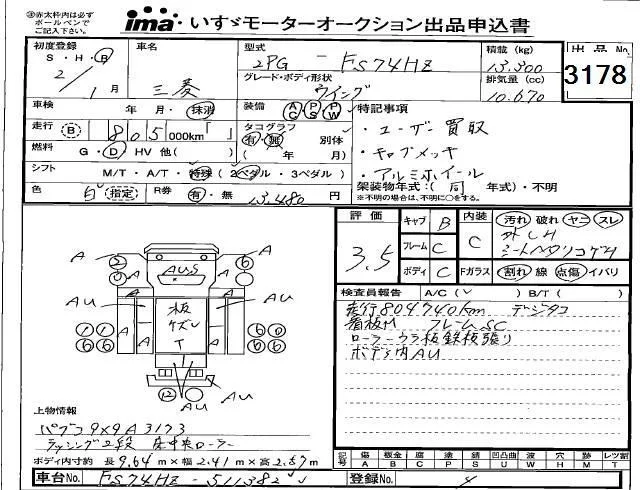 ㊟赤太枠内は必ず
ボールペンで
ご記入下さい。
ima いすゞモーターオークション出品申込書
初度登録
S・H・R
2/1月
車名
三菱
型式
2PG-FS74HZ
グレード・ボディ形状
ウイング
積載 (kg)
13.300
排気量 (cc)
10.670
出品No.
3178
車検 年・月・抹消
装備 AC PS PW
走行 B 805000km「 」
タコグラフ
有・無 別体
( 年 月)
燃料 G・D HV 他( )
シフト M/T・A/T・特殊(2ペダル・3ペダル)
色 白 指定 R券 有・無 13,480円
特記事項
・ユーザー買取
・キャブメッキ
・アルミホイール
架装物年式:(同 年式)・不明
※不明の場合は、不明に○をする。
評価
3.5
キャブ B
フレーム C
ボディ C
内装 C
Fガラス
汚れ 破れ ヤニ スレ
外しH
シートヘタリコゲH
割れ 線 点傷 イバリ
検査員報告 A/C(レ) B/T( )
走行804740km デジタコ
看板M フレームSC
ローラーウラ板鉄板張り
ボデ内AU
A A
AUS
AU 板 AU
A A ズレ A A
T
A AU
AU
上物情報
パブコ 9X9A3173
ラッシング2段 床中央ローラー
ボディ内寸約 長9.64m×幅2.41m×高2.57m
記号 傷 板金 腐 塗 錆 凹凸曲 波 穴 跡 レツ割
A B C P S U W H M T
車台No. FS74HZ-511382
登録No.